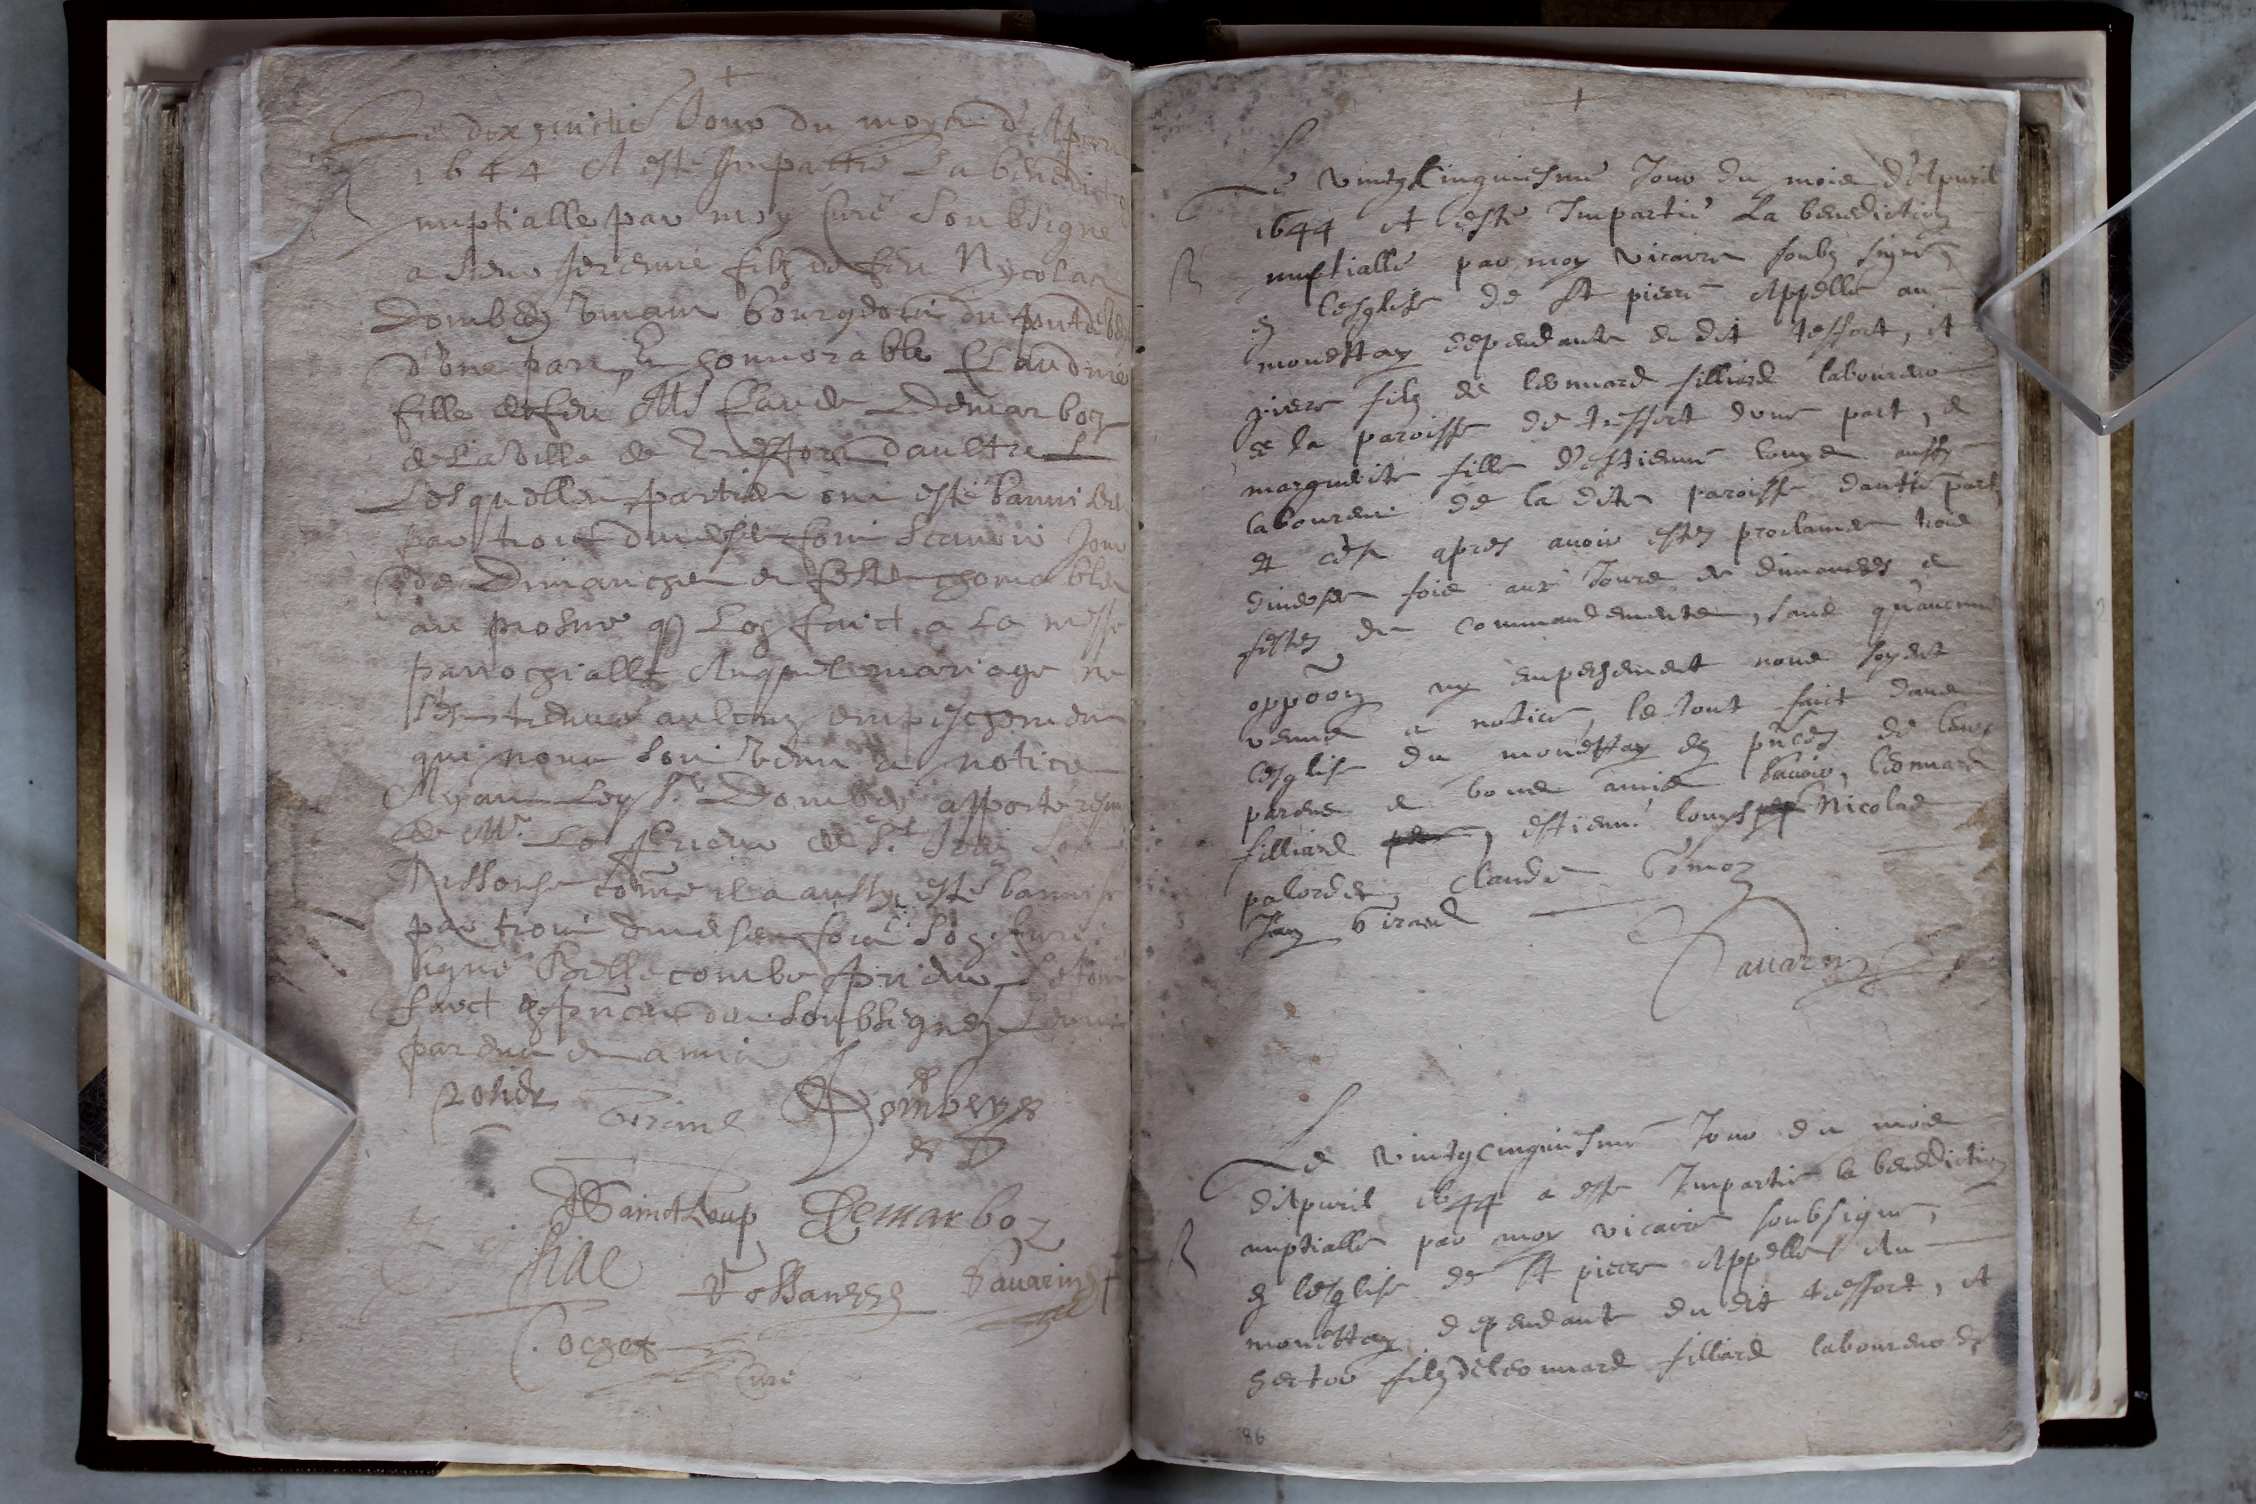 Le dix huictie Jour du moys d'Apvril
1644 A esté Impartie La benediction
nuptialle par moy Curé Soubsigné
a Sieur Jeremie filz de feu Nycolas
Dombey vivant bourgeois du pont de
d'une part, Et honnorable Claudine
fille de feu Me Claude Demarboz
de La Ville de Treffort d'aultre
Lesquelles parties ont esté bannises
par trois diverses fois Scavoir Jour
de Dimanche et feste chomable
au prosne q Lon faict a La messe
parrochialle Auquel mariage ne
s'est treuvé aulcung empeschement
qui nous soit venu a notice
Ayant Ley Sr. Dombey apporté
de Mr. Le prieur de St.
comme il a aussy esté bannis
par trois diverses fois
signé Bellecombe prieur Le tout
faict en pnce des Soubsignez Leurs
parens et amis
Rosier
Girand
Dombey
DSainctLoup Demarboz
Vossanges
Savarin
Cochet
Curé
Le vingtcinquiesme Jour du mois D'Apvril
1644 A esté Impartie La benediction
nuptialle par moy vicaire soubz signé,
en l'esglise de St pierre Appellé au
monestay dependante du dit treffort, A
pierre filz de leonnard filliard laboureur
de la paroisse de treffort d'une part, et
marguerite fille d'estienne aussy
laboureur de la dite paroisse d'autre part
et ce apres avoir estez proclamer trois
diverses fois aux Jours de dimanches et
festes de commandementz, sans qu'aucune
oppoon ny empechement nous soyent
venue a notice, le tout fait dans
l'esglise du monestay en pnces de leurs
parens et bons amis Savoir, leonnard
filliard, estienne Nicolas
palordet, claude
Jean Girard
Savarin
Le vingtcinquiesme Jour du mois
D'Apvril 1644 a esté Impartie la benediction
nuptialle par moy vicaire soubsigné,
en l'esglise de St pierre Appellé Au
monestay dependante du dit treffort, A
hector filz de leonnard filliard laboureur de
86